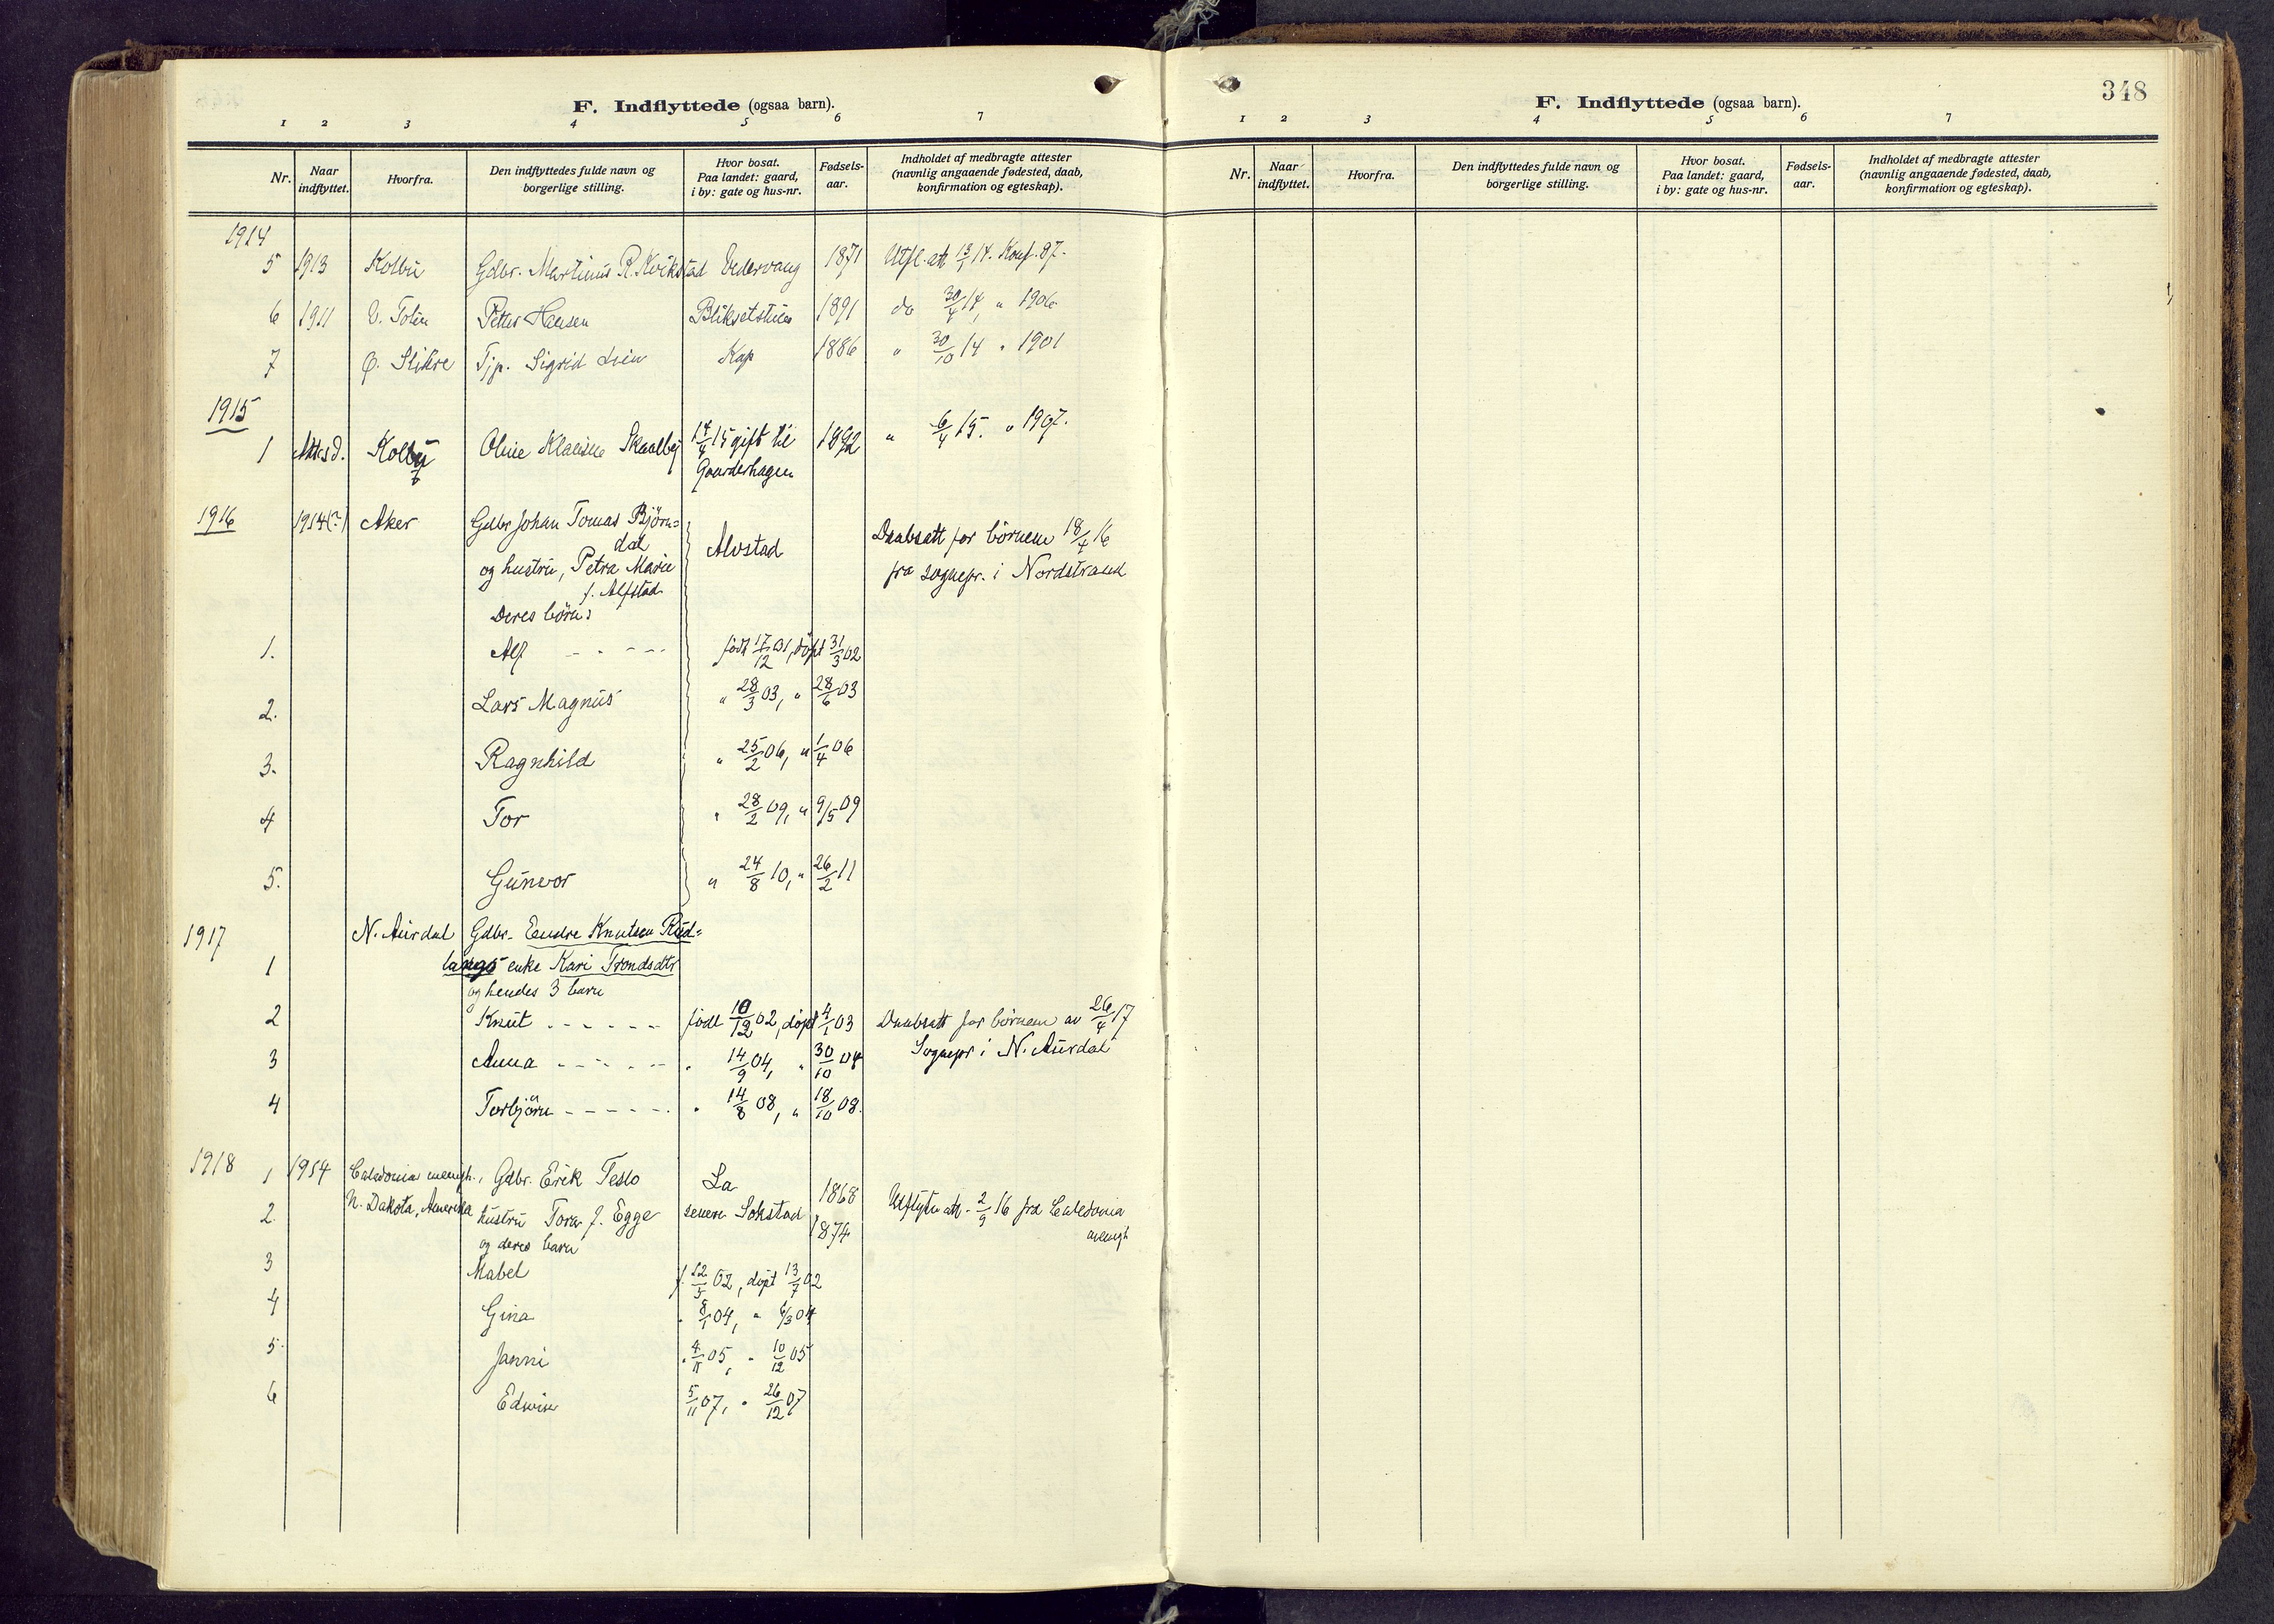 F. Indflyttede (ogsaa barn).
1 2 3 4 5 6 7
Nr. Naar indflyttet. Hvorfra. Den indflyttedes fulde navn og borgerlige stilling. Hvor bosat. Paa landet: gaard, i by: gate og hus-nr. Fødsels-aar. Indholdet af medbragte attester (navnlig angaaende fødested, daab, konfirmation og egteskap).
1914
5 1913 Kolbu Gdbr. Martinus R. Kvikstad Vedervang 1871 Utfl.att 13/1 14. Konf. 87.
6 1911 V. Toten Petter Hansen 1891 do 30/4 14, " 1906
7 Ø. Slidre Tjp. Sigrid Lien Kap 1886 " 30/10 14 " 1901
1915
1 Kolbu Oline Klausen Skaalbg 14/4 15 gift til 1892 " 6/4 15. " 1907.
Gaardershagen
1916 1914(?) Aker Gdbr Johan Tomas Bjørn=
dal
Alvstad Daabsatt for børnene 18/4 16
og hustru, Petra Marie fra sognepr. i Nordstrand
f. Alfstad
Deres børn:
1. Alf - - - - født 17/12 01, døpt 31/3 02
2. Lars Magnus " 28/3 03, " 28/6 03
3. Ragnhild " 25/2 06, " 1/4 06
4 Tor " 28/2 09, " 9/5 09
5. Gunvor " 24/8 10, " 26/2 11
1917 N. Aurdal Gdbr. Endre Knutsen Rud=
1 langs enke Kari Trondsdtr
og hendes 3 barn
2 Knut - - - - - - født 10/12 02, døpt 4/1 03 Daabsatt for børnene av 26/4 17
3 Anna - - - - - " 14/9 04, " 30/10 04 Sognepr i N. Aurdal
4 Torbjørn - - - - - - " 14/8 08, " 18/10 08.
1918 1 1914 Caledonia menigh., Gdbr. Erik Teslo La 1868
2. N. Dakota, Amerika hustru Tora f. Egge senere Sokstad 1874 Utflytn att. 2/9 16 fra Caledonia
menigh
og deres barn
3 Mabel f. 22/5 02, døpt 13/7 02
4 Gina " 8/1 04, " 6/3 04
5. Janni " 4/11 05, " 10/12 05
6 Edwin 5/11 07, " 26/12 07
348
F. Indflyttede (ogsaa barn).
1 2 3 4 5 6 7
Nr. Naar indflyttet. Hvorfra. Den indflyttedes fulde navn og borgerlige stilling. Hvor bosat. Paa landet: gaard, i by: gate og hus-nr. Fødsels-aar. Indholdet af medbragte attester (navnlig angaaende fødested, daab, konfirmation og egteskap).